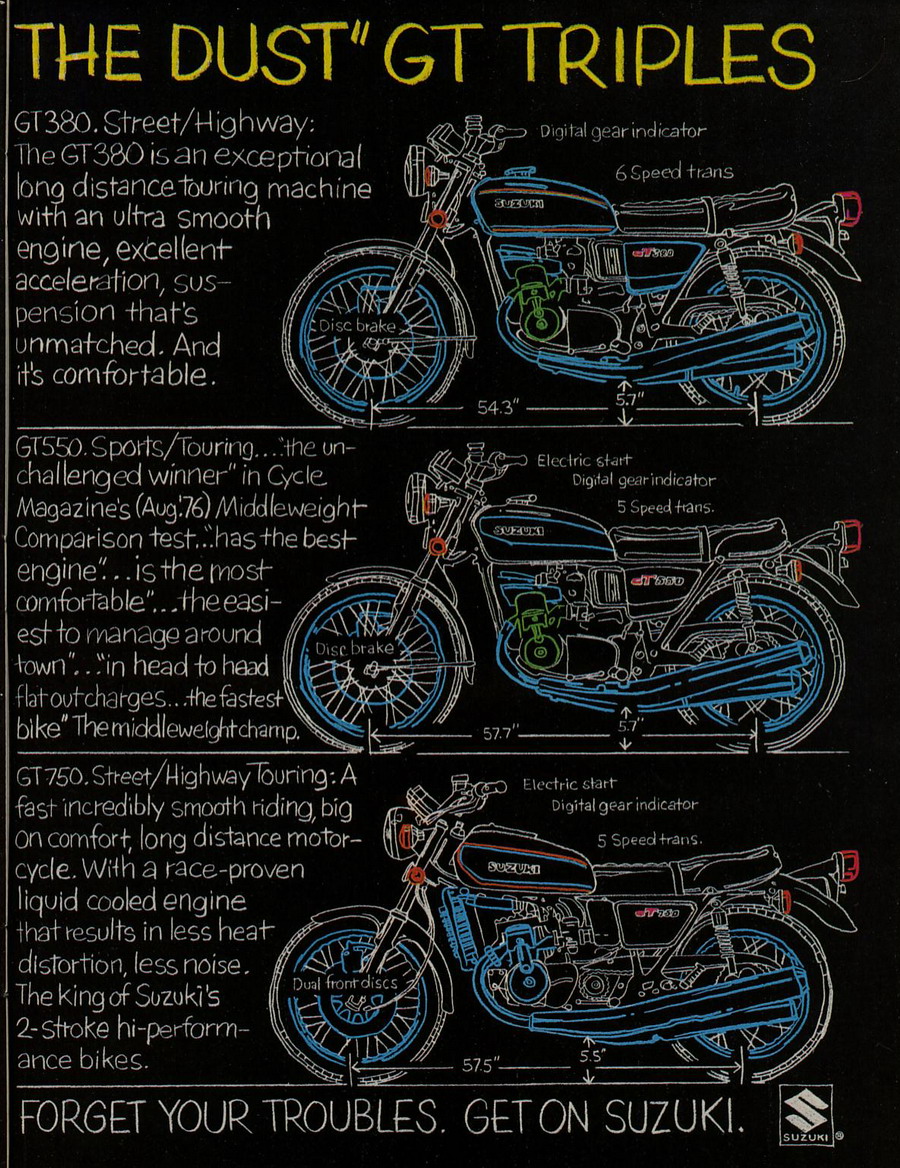 THE DUST" GT TRIPLES
GT380. Street/Highway:
The GT380 is an exceptional
long distance touring machine
with an ultra smooth
engine, excellent
acceleration, sus-
pension that's
unmatched. And
it's comfortable.
Digital gear indicator
6 Speed trans
SUZUKI
GT380
Disc brake
54.3"
5.7"
GT550. Sports/Touring...."the un-
challenged winner" in Cycle
Magazine's (Aug.'76) Middleweight
Comparison test..."has the best
engine"...is the most
comfortable"...the easi-
est to manage around
town"..."in head to head
flat out charges...the fastest
bike" The middleweight champ.
Electric start
Digital gear indicator
5 Speed trans.
SUZUKI
GT550
Disc brake
57.7"
5.7"
GT750. Street/Highway Touring: A
fast incredibly smooth riding, big
on comfort, long distance motor-
cycle. With a race-proven
liquid cooled engine
that results in less heat
distortion, less noise.
The King of Suzuki's
2-stroke hi-perform-
ance bikes.
Electric start
Digital gear indicator
5 Speed trans.
SUZUKI
GT750
Dual front discs
57.5"
5.5"
FORGET YOUR TROUBLES. GET ON SUZUKI.
SUZUKI®